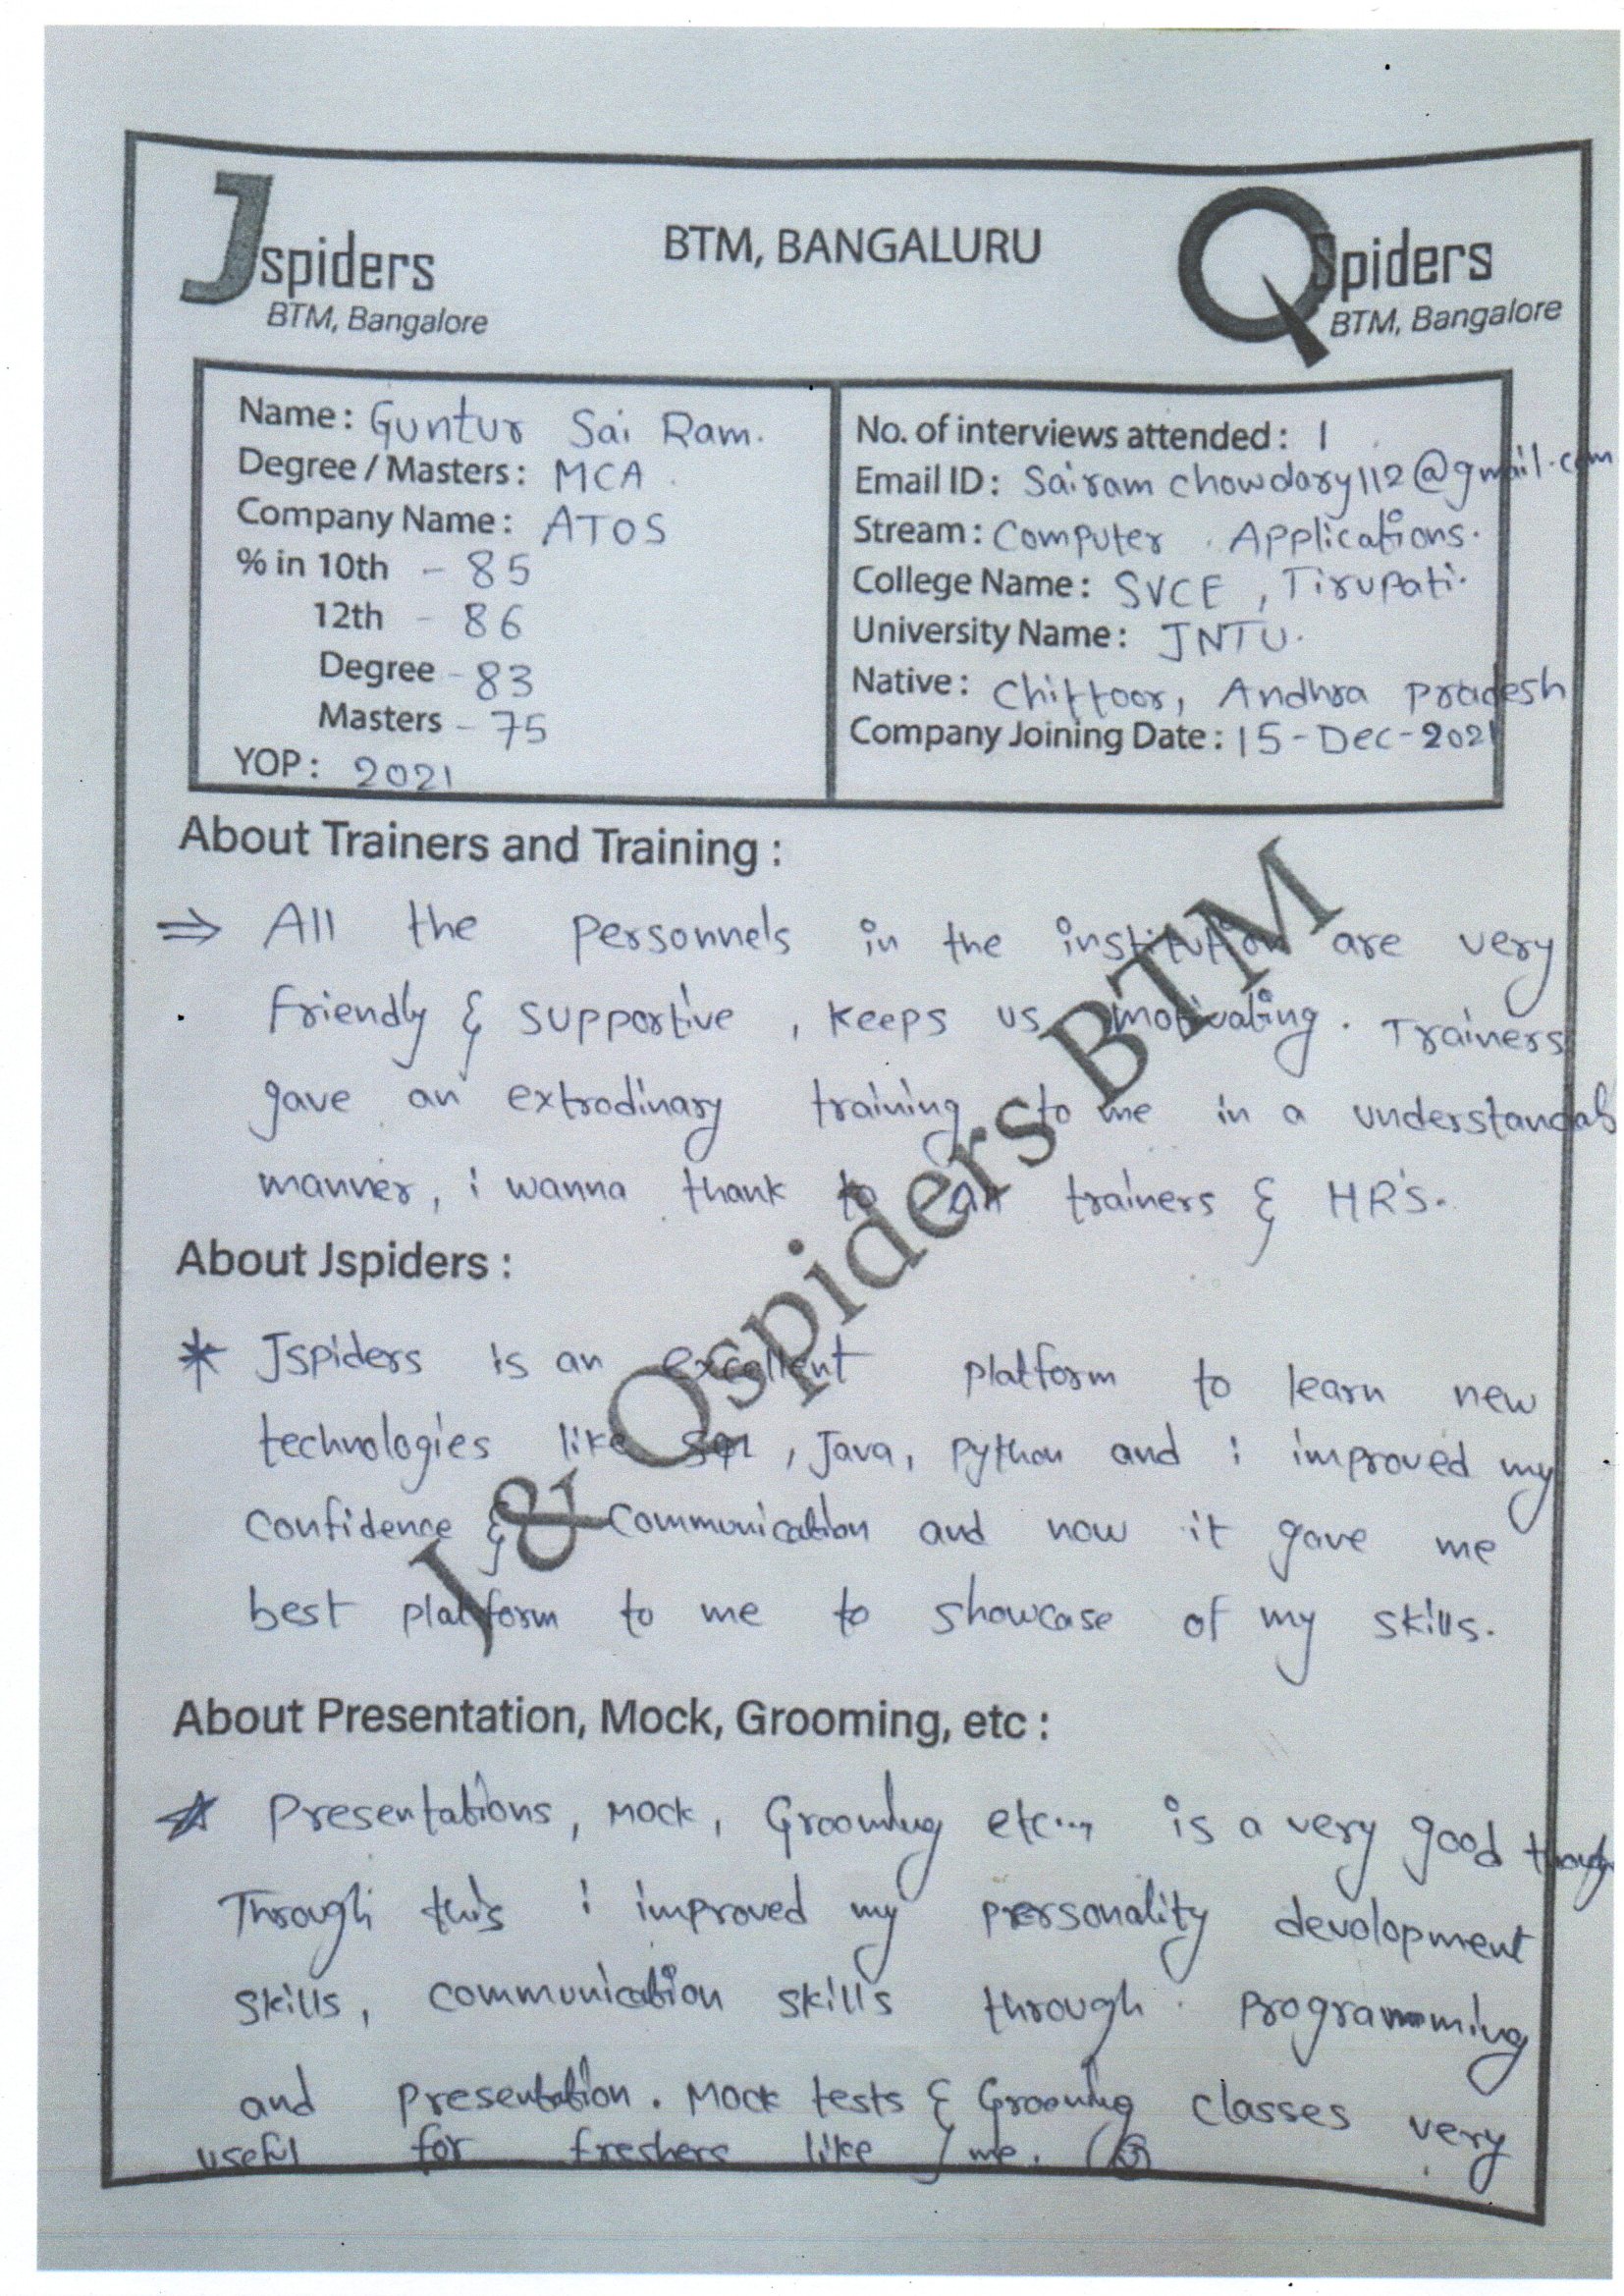 Jspiders
BTM, Bangalore
BTM, BANGALURU
QSpiders
BTM, Bangalore
Name: Guntur Sai Ram.
Degree / Masters: MCA.
Company Name: ATOS
% in 10th - 85
12th - 86
Degree - 83
Masters - 75
YOP: 2021
No. of interviews attended: 1
Email ID: Sairam chowdary112@gmail.com
Stream: Computer Applications.
College Name: SVCE, Tirupati.
University Name: JNTU.
Native: Chittoor, Andhra Pradesh
Company Joining Date: 15-Dec-2021
About Trainers and Training:
⇒ All the personnels in the institution are very
friendly & supportive, keeps us motivating. Trainers
gave an extrodinary training to me in a understandab
manner, i wanna thank to all trainers & HR's.
About Jspiders:
* Jspiders is an excellent platform to learn new
technologies like sql, Java, python and i improved my
confidence & communication and now it gave me
best platform to me to showcase of my skills.
About Presentation, Mock, Grooming, etc:
* Presentations, Mock, Grooming etc.., is a very good
Through this i improved my personality devolopment
skills, communication skills through programming
and presentation. Mock tests & Grooming classes very
useful for freshers like me.
J & Qspiders BTM